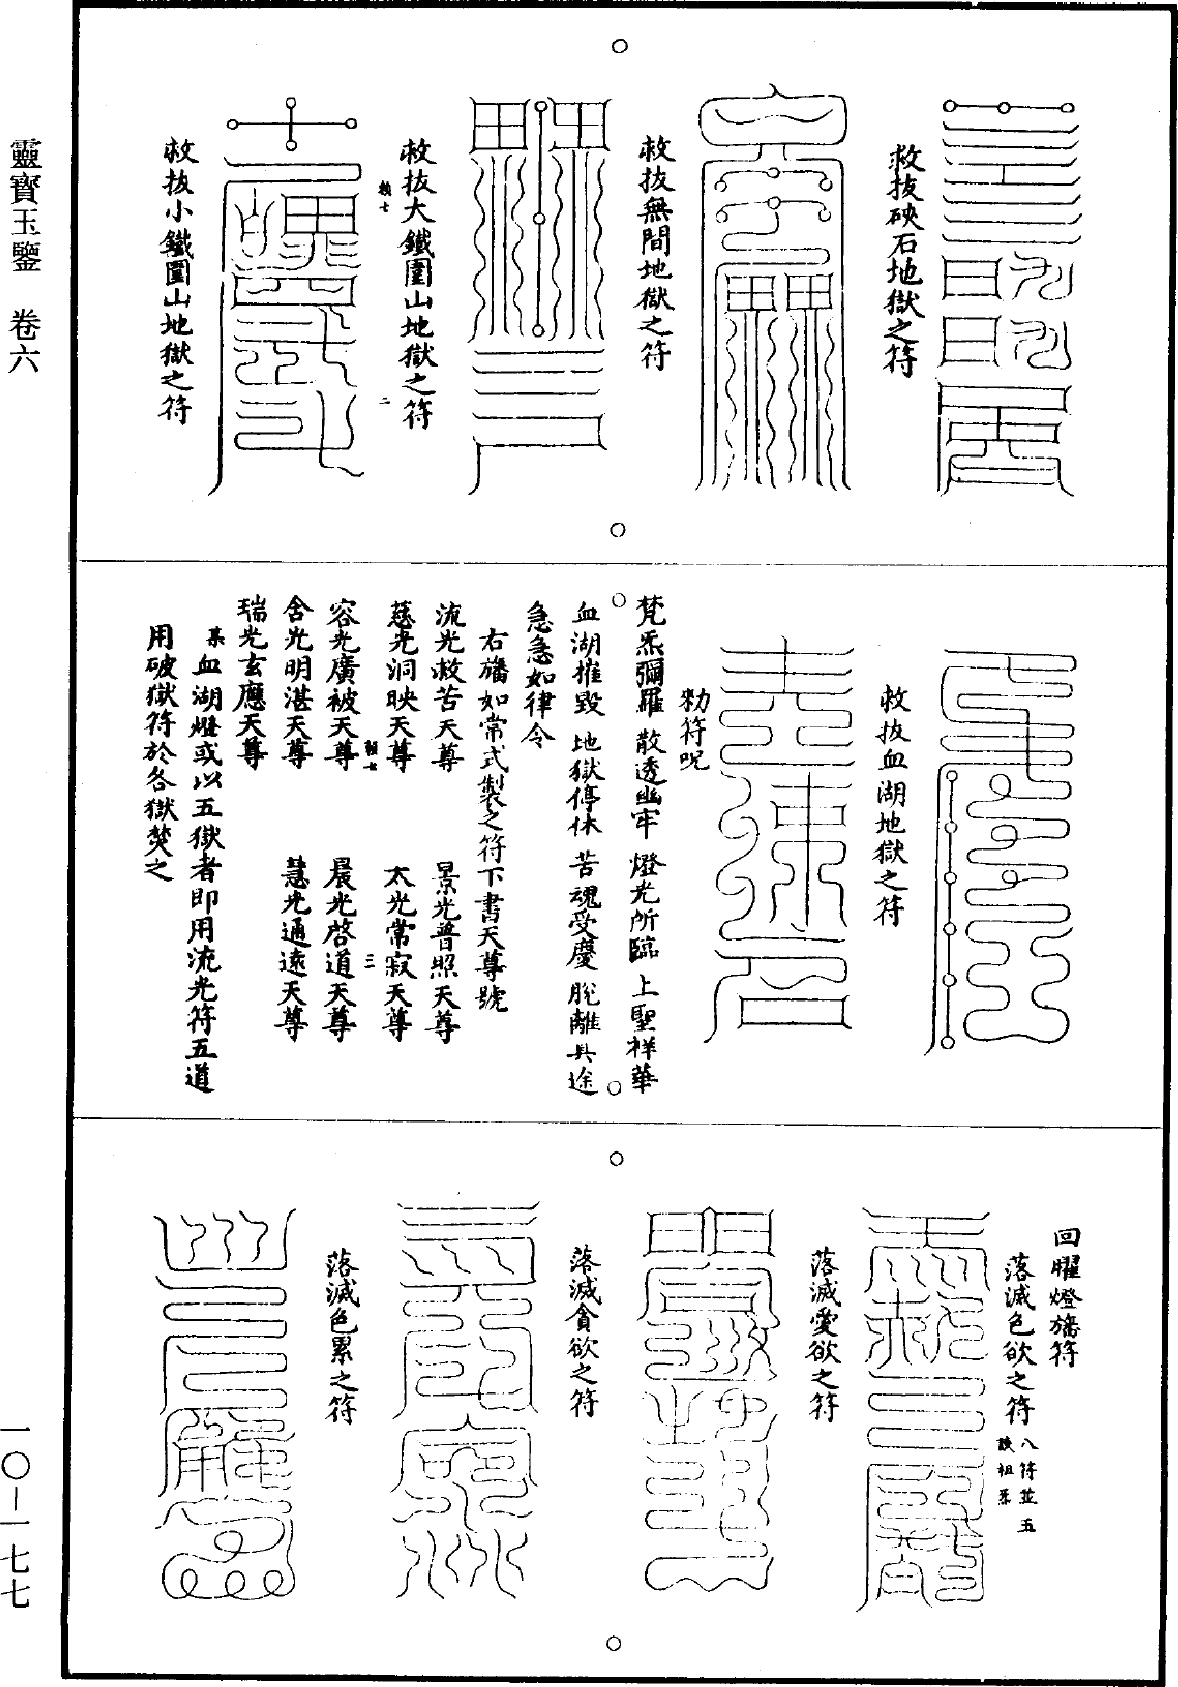 靈寶玉鑒 卷六
一〇—一七七
救拔硤石地獄之符
救拔無間地獄之符
救拔大鐵圍山地獄之符
救拔小鐵圍山地獄之符
救拔血湖地獄之符
勑符呪
梵炁彌羅 散透幽牢 燈光所臨 上聖祥華
血湖摧毀 地獄停休 苦魂受慶 脫離其途
急急如律令
右旛如常式製之符下書天尊號
流光救苦天尊 景光普照天尊
慈光洞映天尊 太光常寂天尊
容光廣被天尊 晨光啓道天尊
舍光明湛天尊 慧光通遠天尊
瑞光玄應天尊
某血湖燈或以五獄者即用流光符五道
用破獄符於各獄焚之
回曜燈旛符
落滅色欲之符 八符並五
誤祖炁
落滅愛欲之符
落滅貪欲之符
落滅色累之符